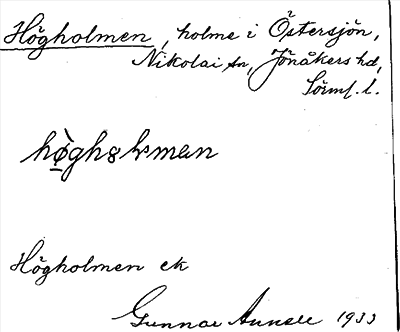 Högholmen, holme i Östersjön,
Nikolai sn, Jönåkers hd,
Sörml. l.
Högholmen ek
Gunnar 1933